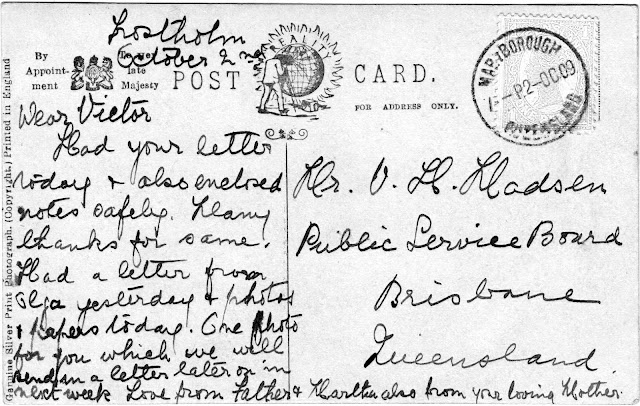 Frostholm
October 2nd
By Appointment
To Her late Majesty
REALITY
POST CARD.
FOR ADDRESS ONLY.
MARYBOROUGH
P2-OC 09
QUEENSLAND
Genuine Silver Print Photograph. (Copyright.) Printed in England
Dear Victor
Had your letter
today & also enclosed
notes safely. Many
thanks for same.
Had a letter from
Olga yesterday & photos
& papers today. One photo
for you which we will
send in a letter later on in
next week Love from Father & Martha also from your loving Mother.
Mr. V. H. Madsen
Public Service Board
Brisbane
Queensland